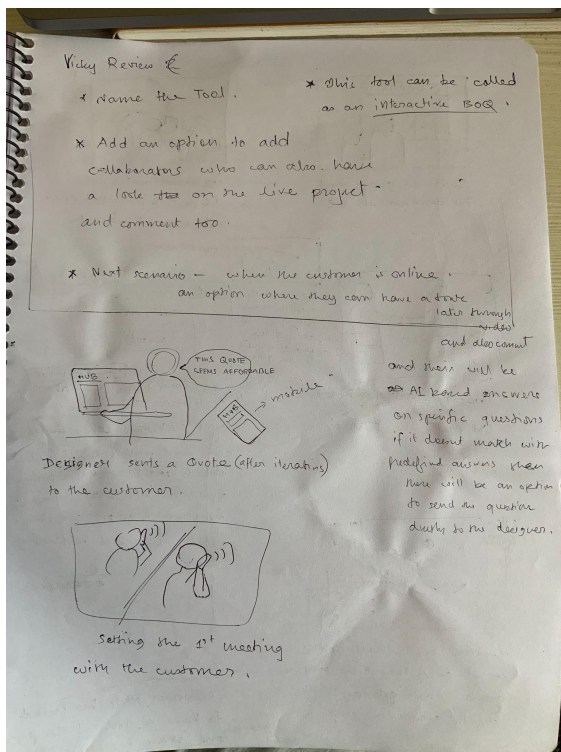 Vicky Review
* Name the Tool.
* This tool can be called
as an interactive BOQ.
* Add an option to add
collaborators who can also have
a look on the live project
and comment too.
* Next scenario - when the customer is online.
an option where they can have a
later through
video
and also comment
and there will be
AI based answers
on specific questions
if it doesnt match with
predefind answers then
there will be an option
to send the question
directly to the designer.
HUB
THIS QUOTE
SEEMS AFFORDABLE
HUB
mobile
Designer sents a Quote (after iterations)
to the customer.
Setting the 1st meeting
with the customer.